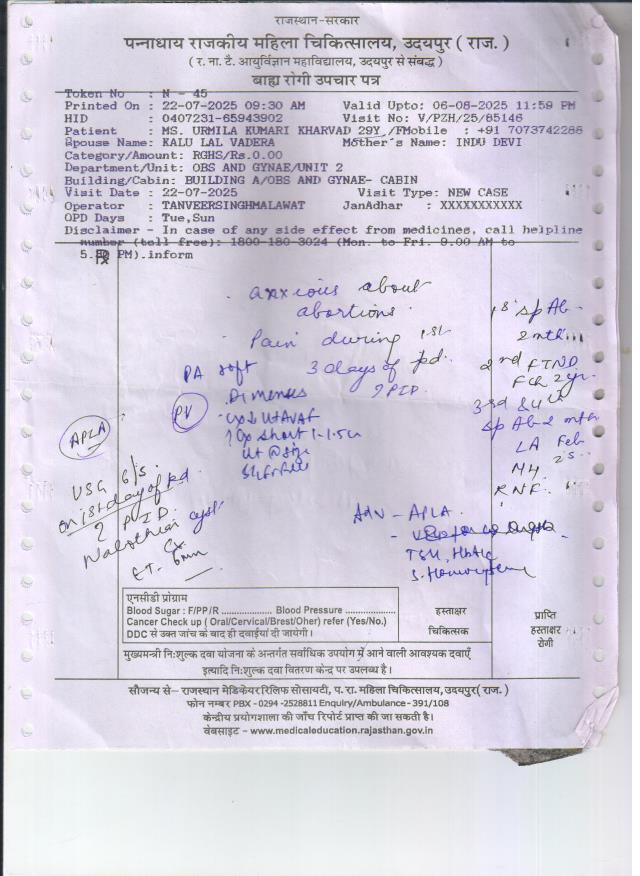 राजस्थान-सरकार
पन्नाधाय राजकीय महिला चिकित्सालय, उदयपुर ( राज. )
( र. ना. टै. आयुर्विज्ञान महाविद्यालय, उदयपुर से संबद्ध )
बाह्य रोगी उपचार पत्र
Token No : N - 45
Printed On : 22-07-2025 09:30 AM Valid Upto: 06-08-2025 11:59 PM
HID : 0407231-65943902 Visit No: V/PZH/25/85146
Patient : MS. URMILA KUMARI KHARVAD 29Y /FMobile : +91 7073742286
Spouse Name: KALU LAL VADERA Mother's Name: INDU DEVI
Category/Amount: RGHS/Rs.0.00
Department/Unit: OBS AND GYNAE/UNIT 2
Building/Cabin: BUILDING A/OBS AND GYNAE- CABIN
Visit Date : 22-07-2025 Visit Type: NEW CASE
Operator : TANVEERSINGHMALAWAT JanAdhar : XXXXXXXXXXX
OPD Days : Tue,Sun
Disclaimer - In case of any side effect from medicines, call helpline
number (toll free): 1800-180-3024 (Mon. to Fri. 9.00 AM to
PM).inform
Rx
anxious about
abortions.
Pain during 1st
3 days of pd.
? PID.
PA soft
PV
Ut
APLA
USG
on 1st day of pd.
? PID.
Nabothian cyst
Cx
ET. 6mm
1st sp Ab
2 mth
2nd FTND
FCh 2yr.
3rd & 4th
sp Ab 2 mth
LA Feb
M4
RNF.
Adv - APLA.
TSH, HbA1c
S.
एनसीडी प्रोग्राम
Blood Sugar : F/PP/R .................... Blood Pressure ....................
Cancer Check up ( Oral/Cervical/Brest/Oher) refer (Yes/No.)
DDC से उक्त जांच के बाद ही दवाईयां दी जायेगी।
हस्ताक्षर
चिकित्सक
प्राप्ति
हस्ताक्षर
रोगी
मुख्यमन्त्री नि:शुल्क दवा योजना के अन्तर्गत सर्वाधिक उपयोग में आने वाली आवश्यक दवाएँ
इत्यादि नि:शुल्क दवा वितरण केन्द्र पर उपलब्ध है।
सौजन्य से– राजस्थान मेडिकेयर रिलिफ सोसायटी, प. रा. महिला चिकित्सालय, उदयपुर ( राज. )
फोन नम्बर PBX - 0294 -2528811 Enquiry/Ambulance - 391/108
केन्द्रीय प्रयोगशाला की जाँच रिपोर्ट प्राप्त की जा सकती है।
वेबसाइट – www.medicaleducation.rajasthan.gov.in